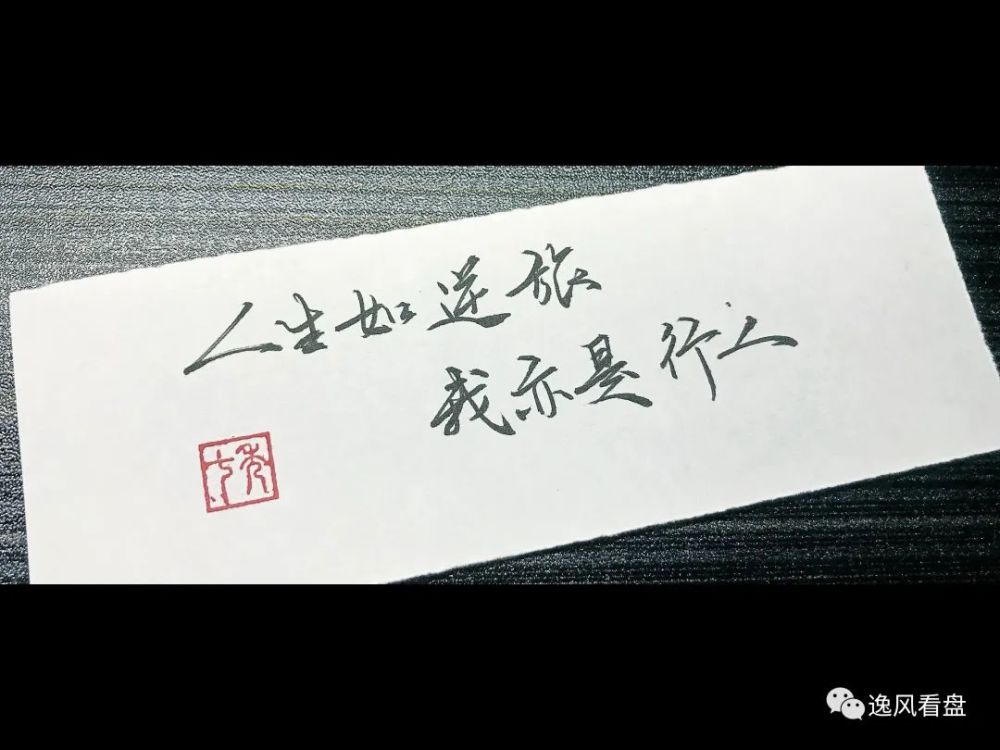 人生如逆旅
我亦是行人
逸风看盘